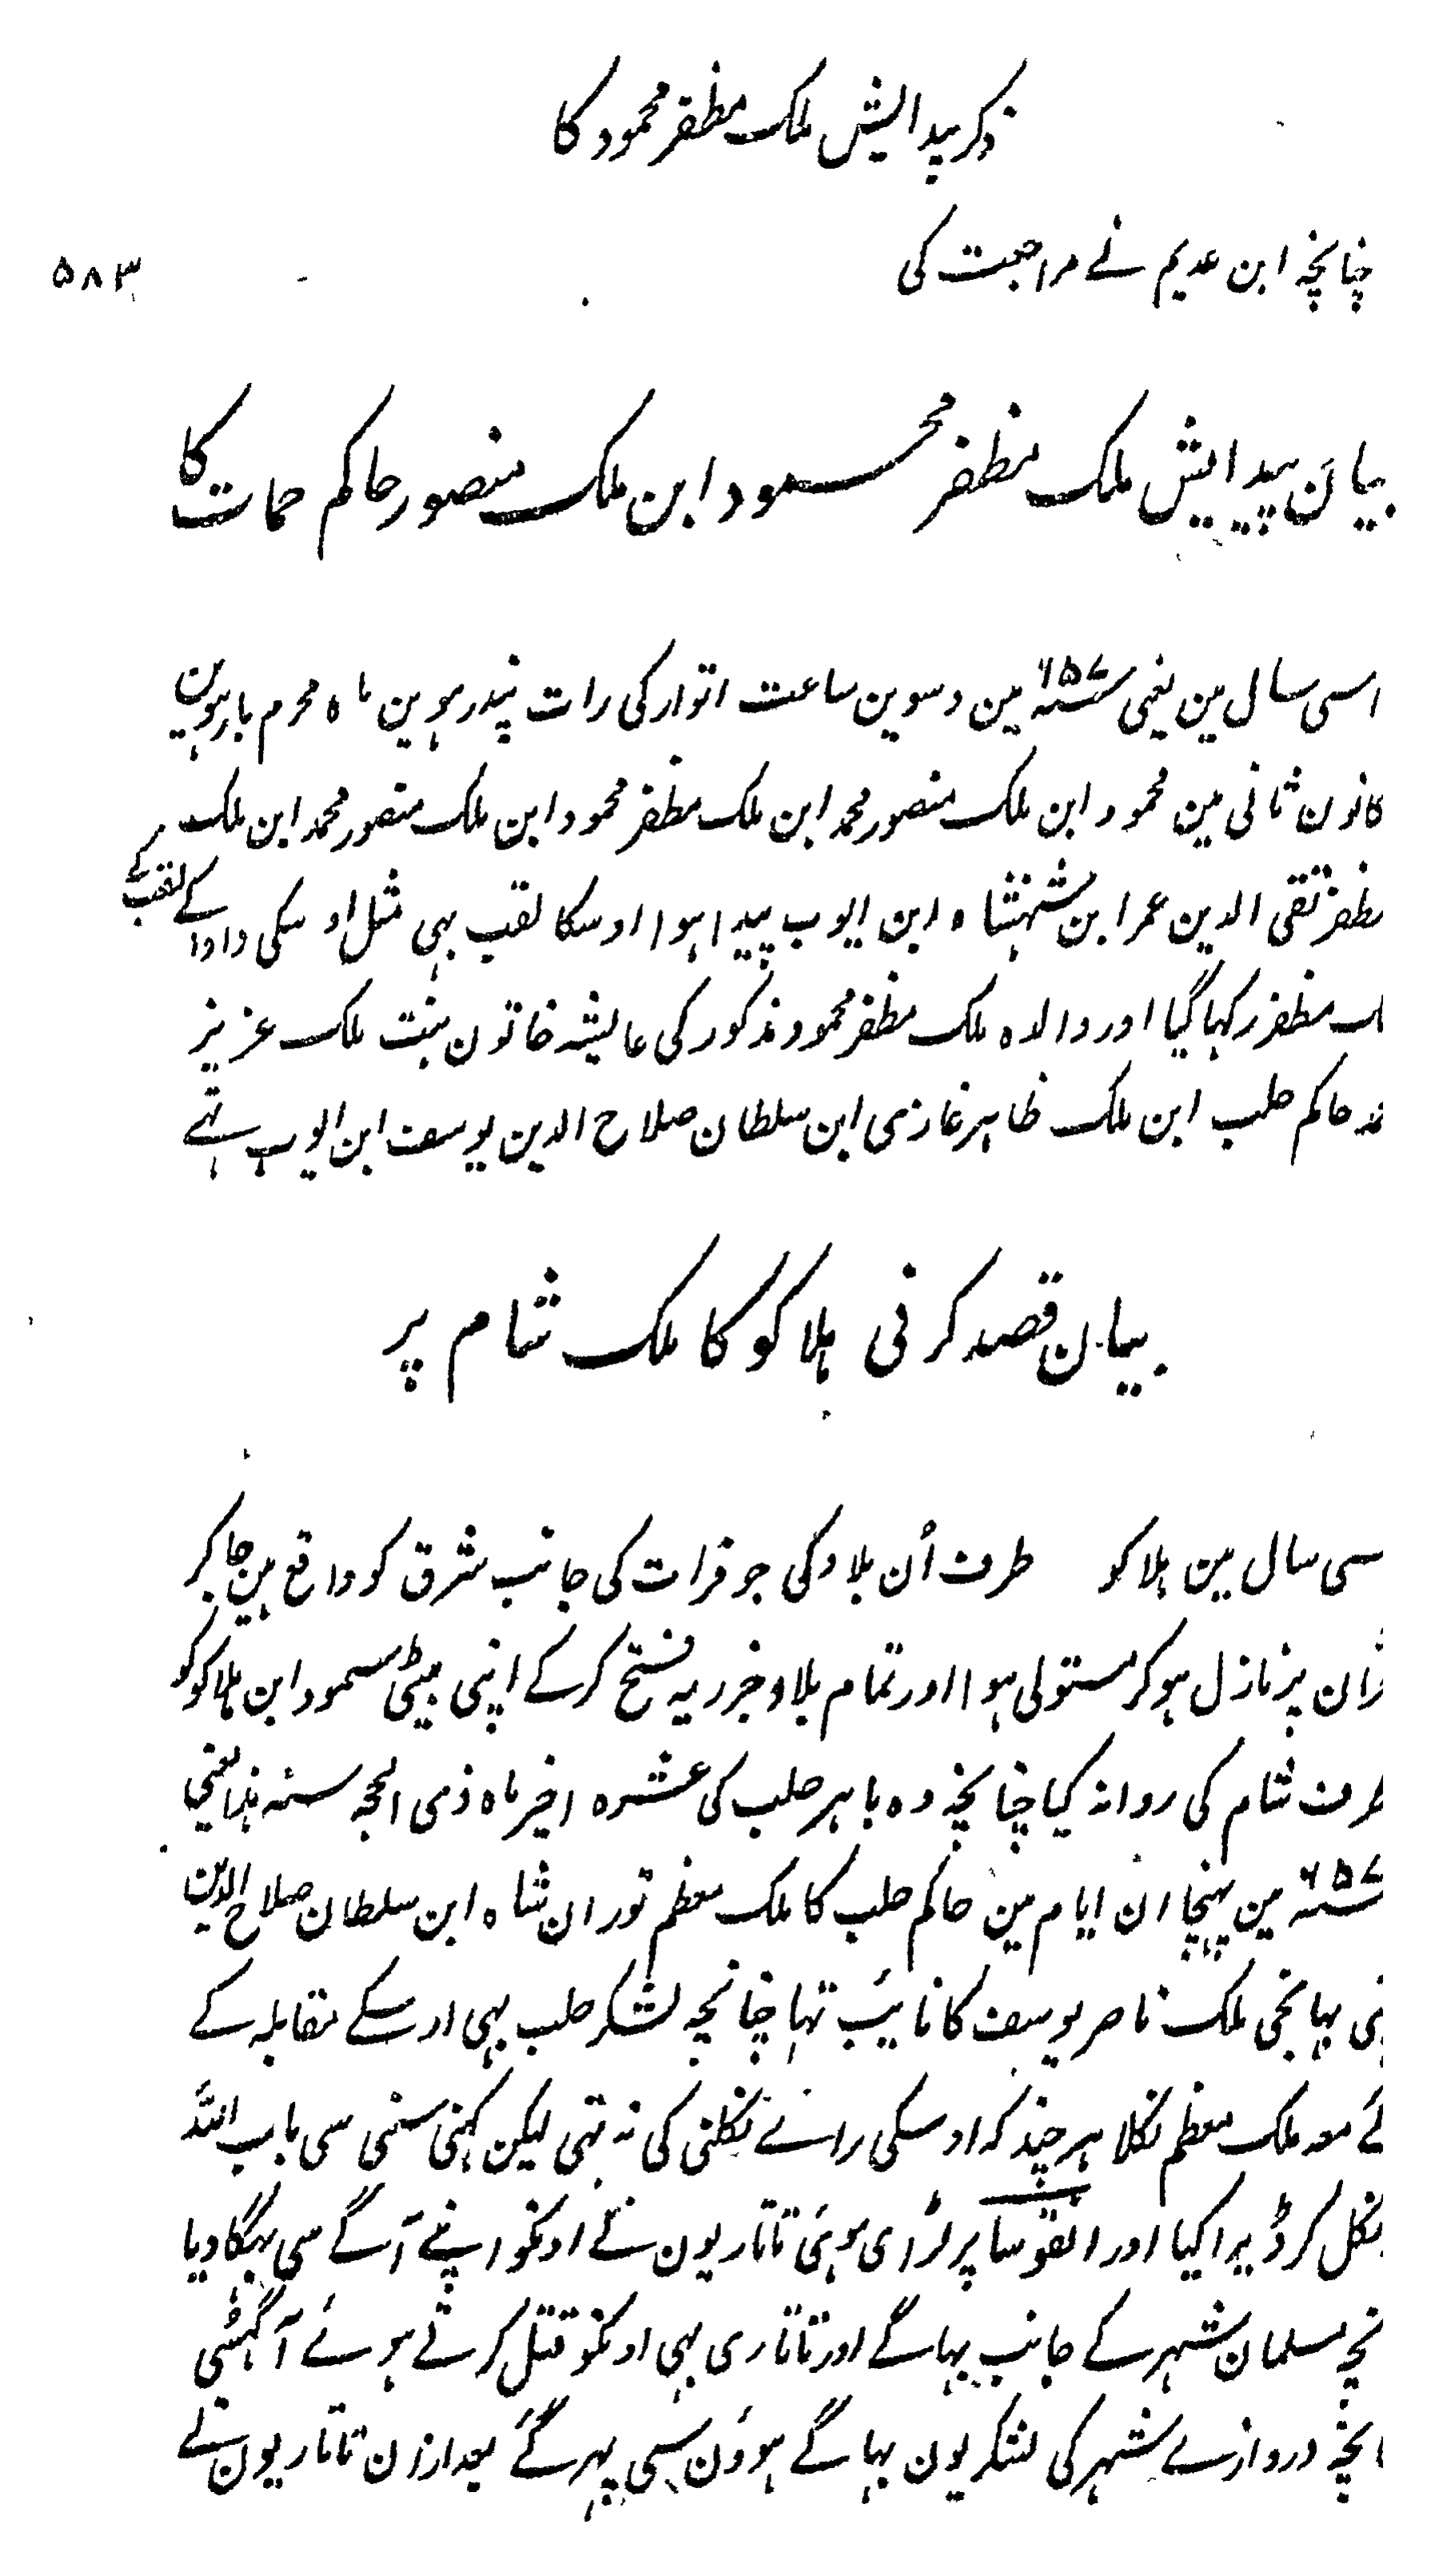 ذکر پیدایش ملک مظفر محمود کا
چنانچہ ابن عدیم نے مراجعت کی
۵۸۳
بیان پیدایش ملک مظفر محمود ابن ملک منصور حاکم حمات کا
اسی سال مین یعنی سنہ ۶۵۷ مین دسوین ساعت اتوار کی رات پندرہوین ماہ محرم بارہوین
کانون ثانی مین محمود ابن ملک منصور محمد ابن ملک مظفر محمود ابن ملک منصور محمد ابن ملک
مظفر تقی الدین عمر ابن شہنشاہ ابن ایوب پیدا ہوا اوسکا لقب بہی مثل اوسکی دادا کے لقب کے
ملک مظفر رکہا گیا اور والدہ ملک مظفر محمود مذکور کی عایشہ خاتون بنت ملک عزیز
محمد حاکم حلب ابن ملک ظاہر غازی ابن سلطان صلاح الدین یوسف ابن ایوب تہے
بیان قصد کرنی ہلاکو کا ملک شام پر
سی سال مین ہلاکو طرف اُن بلاد کی جو فرات کی جانب شرق کو واقع ہین جا کر
ران پر نازل ہو کر مستولی ہوا اور تمام بلاد جزریہ فتح کر کے اپنی بیٹی سمود ابن ہلاکو کو
طرف شام کی روانہ کیا چنانچہ وہ باہر حلب کی عشرہ اخیر ماہ ذی الحجہ سنہ ہذا یعنی
سنہ ۶۵۷ مین پہنچا ان ایام مین حاکم حلب کا ملک معظم توران شاہ ابن سلطان صلاح الدین
نی بہانجی ملک ناصر یوسف کا نایٔب تہا چنانچہ لشکر حلب بہی اوسکے مقابلہ کے
لئے معہ ملک معظم نکلا ہر چند کہ اوسکی رائے نکلنی کی نہ تہی لیکن کہنی سنی سی باب اللہ
نکل کر ڈیرا کیا اور انقوسا پر لڑای ہوئی تاتاریون نے اونکو اپنے آگے سی بہگا دیا
نچہ مسلمان شہر کے جانب بہاگے اور تاتاری بہی اونکو قتل کرتے ہوئے آ گہسی
انچہ دروازے شہر کی لشکریون بہاگے ہوؤن سی بہر گئے بعد ازان تاتاریون نے